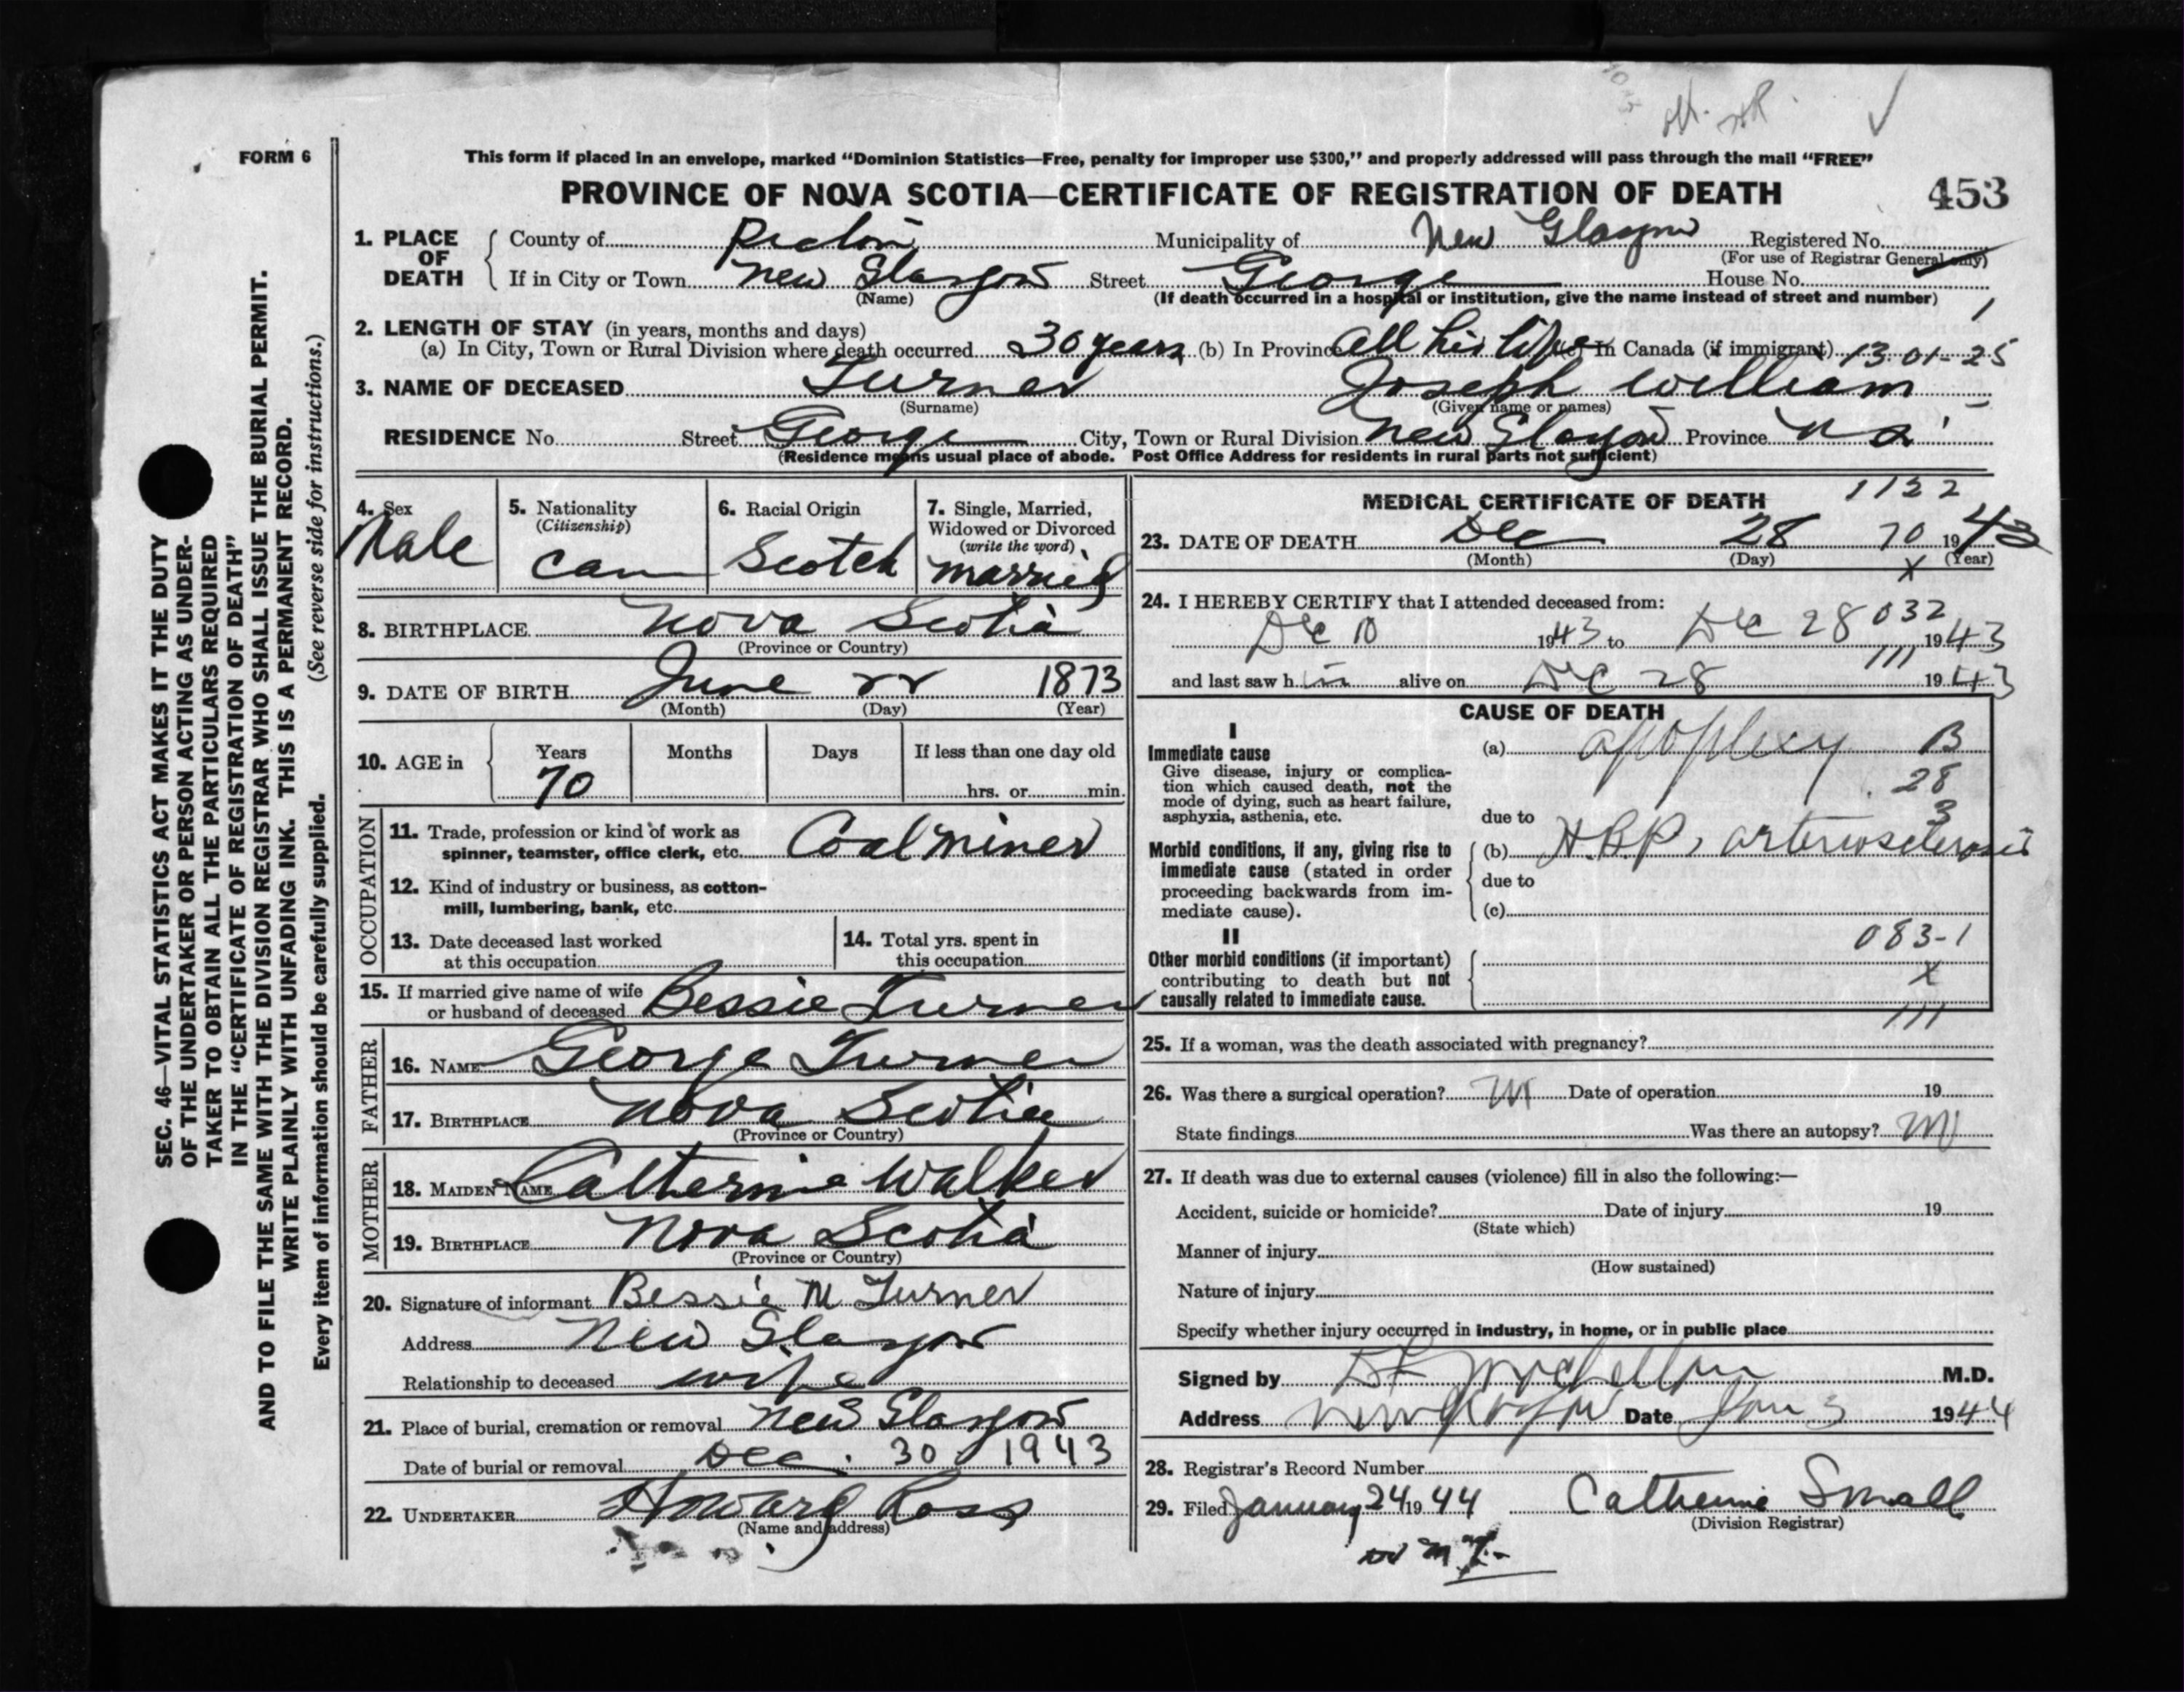 FORM 6
This form if placed in an envelope, marked “Dominion Statistics—Free, penalty for improper use $300,” and properly addressed will pass through the mail “FREE”
PROVINCE OF NOVA SCOTIA—CERTIFICATE OF REGISTRATION OF DEATH
453
1. PLACE OF DEATH
County of Pictou Municipality of New Glasgow Registered No.
(For use of Registrar General only)
If in City or Town New Glasgow Street George House No.
(Name) (If death occurred in a hospital or institution, give the name instead of street and number)
2. LENGTH OF STAY (in years, months and days)
(a) In City, Town or Rural Division where death occurred 30 years (b) In Province All his life (c) In Canada (if immigrant) 13-01-25
3. NAME OF DECEASED Turner Joseph William
(Surname) (Given name or names)
RESIDENCE No. Street George City, Town or Rural Division New Glasgow Province N S
(Residence means usual place of abode. Post Office Address for residents in rural parts not sufficient)
4. Sex
Male
5. Nationality
(Citizenship)
Can
6. Racial Origin
Scotch
7. Single, Married,
Widowed or Divorced
(write the word)
married
8. BIRTHPLACE Nova Scotia
(Province or Country)
9. DATE OF BIRTH June 22 1873
(Month) (Day) (Year)
10. AGE in
Years Months Days If less than one day old
70 hrs. or min.
OCCUPATION
11. Trade, profession or kind of work as
spinner, teamster, office clerk, etc. Coal miner
12. Kind of industry or business, as cotton-
mill, lumbering, bank, etc.
13. Date deceased last worked
at this occupation
14. Total yrs. spent in
this occupation
15. If married give name of wife
or husband of deceased Bessie Turner
FATHER
16. NAME George Turner
17. BIRTHPLACE Nova Scotia
(Province or Country)
MOTHER
18. MAIDEN NAME Catherine Walker
19. BIRTHPLACE Nova Scotia
(Province or Country)
20. Signature of informant Bessie M Turner
Address New Glasgow
Relationship to deceased wife
21. Place of burial, cremation or removal New Glasgow
Date of burial or removal Dec. 30 1943
22. UNDERTAKER Howard Ross
(Name and address)
MEDICAL CERTIFICATE OF DEATH
1122
23. DATE OF DEATH Dec 28 70 1943
(Month) (Day) (Year)
X
24. I HEREBY CERTIFY that I attended deceased from:
032
Dec 10 1943 to Dec 28 1943
111
and last saw him alive on Dec 28 1943
CAUSE OF DEATH
I
Immediate cause
Give disease, injury or complica-
tion which caused death, not the
mode of dying, such as heart failure,
asphyxia, asthenia, etc.
(a) apoplexy B
28
3
due to
Morbid conditions, if any, giving rise to
immediate cause (stated in order
proceeding backwards from im-
mediate cause).
(b) H.B.P, arteriosclerosis
due to
(c)
083-1
II
Other morbid conditions (if important)
contributing to death but not
causally related to immediate cause.
X
111
25. If a woman, was the death associated with pregnancy?
26. Was there a surgical operation? Date of operation 19
State findings Was there an autopsy?
27. If death was due to external causes (violence) fill in also the following:—
Accident, suicide or homicide? Date of injury 19
(State which)
Manner of injury
(How sustained)
Nature of injury
Specify whether injury occurred in industry, in home, or in public place
Signed by M.D.
Address New Glasgow Date Jan 3 1944
28. Registrar's Record Number
29. Filed January 24 1944 Catherine Small
(Division Registrar)
SEC. 46—VITAL STATISTICS ACT MAKES IT THE DUTY
OF THE UNDERTAKER OR PERSON ACTING AS UNDER-
TAKER TO OBTAIN ALL THE PARTICULARS REQUIRED
IN THE “CERTIFICATE OF REGISTRATION OF DEATH”
AND TO FILE THE SAME WITH THE DIVISION REGISTRAR WHO SHALL ISSUE THE BURIAL PERMIT.
WRITE PLAINLY WITH UNFADING INK. THIS IS A PERMANENT RECORD.
Every item of information should be carefully supplied. (See reverse side for instructions.)